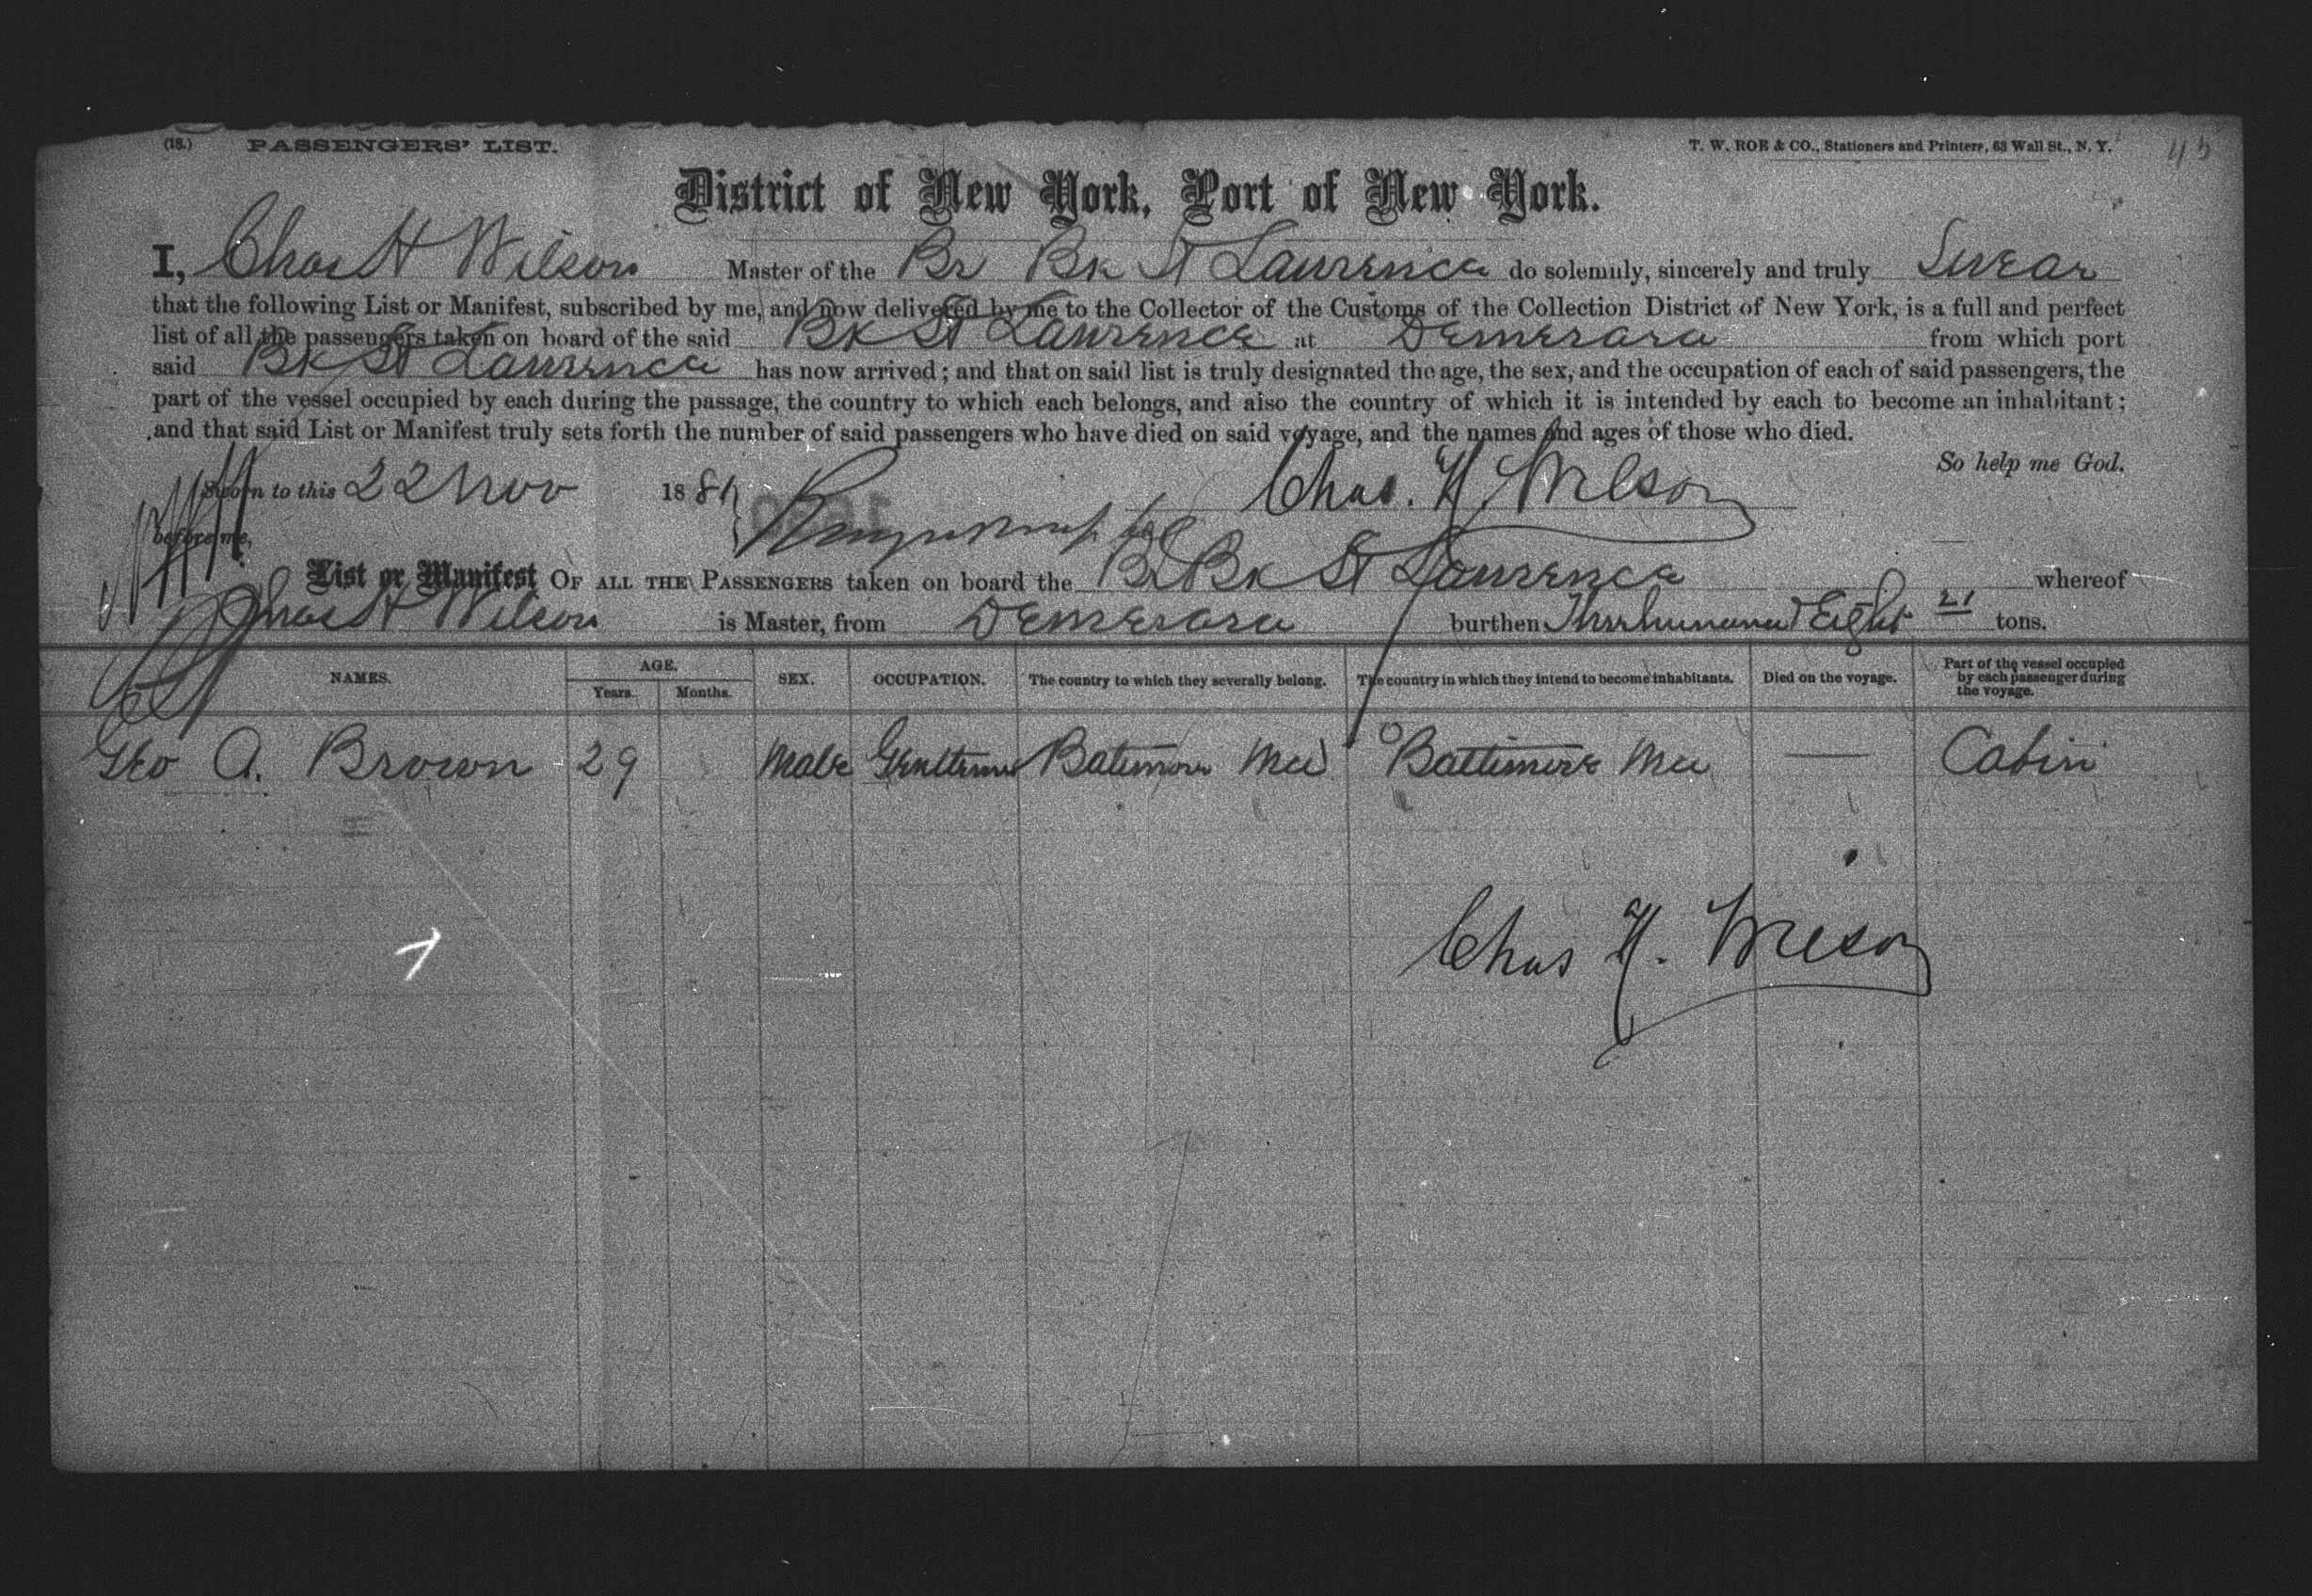 (18.) PASSENGERS' LIST. T. W. ROE & CO., Stationers and Printers, 63 Wall St., N. Y. 45
District of New York, Port of New York.
I, Chas H Wilson Master of the Br Bk St Lawrence do solemnly, sincerely and truly Swear
that the following List or Manifest, subscribed by me, and now delivered by me to the Collector of the Customs of the Collection District of New York, is a full and perfect
list of all the passengers taken on board of the said Bk St Lawrence at Demerara from which port
said Bk St Lawrence has now arrived; and that on said list is truly designated the age, the sex, and the occupation of each of said passengers, the
part of the vessel occupied by each during the passage, the country to which each belongs, and also the country of which it is intended by each to become an inhabitant;
and that said List or Manifest truly sets forth the number of said passengers who have died on said voyage, and the names and ages of those who died.
So help me God.
Sworn to this 22 Nov 188 Chas. H. Wilson
before me,
List or Manifest OF ALL THE PASSENGERS taken on board the Br Bk St Lawrence whereof
Chas H Wilson is Master, from Demerara burthen Eight 21 tons.
NAMES. AGE. Years. Months. SEX. OCCUPATION. The country to which they severally belong. The country in which they intend to become inhabitants. Died on the voyage. Part of the vessel occupied by each passenger during the voyage.
Geo A. Brown 29 Male Gentleman Batimore Md Baltimore Md — Cabin
Chas H. Wilson